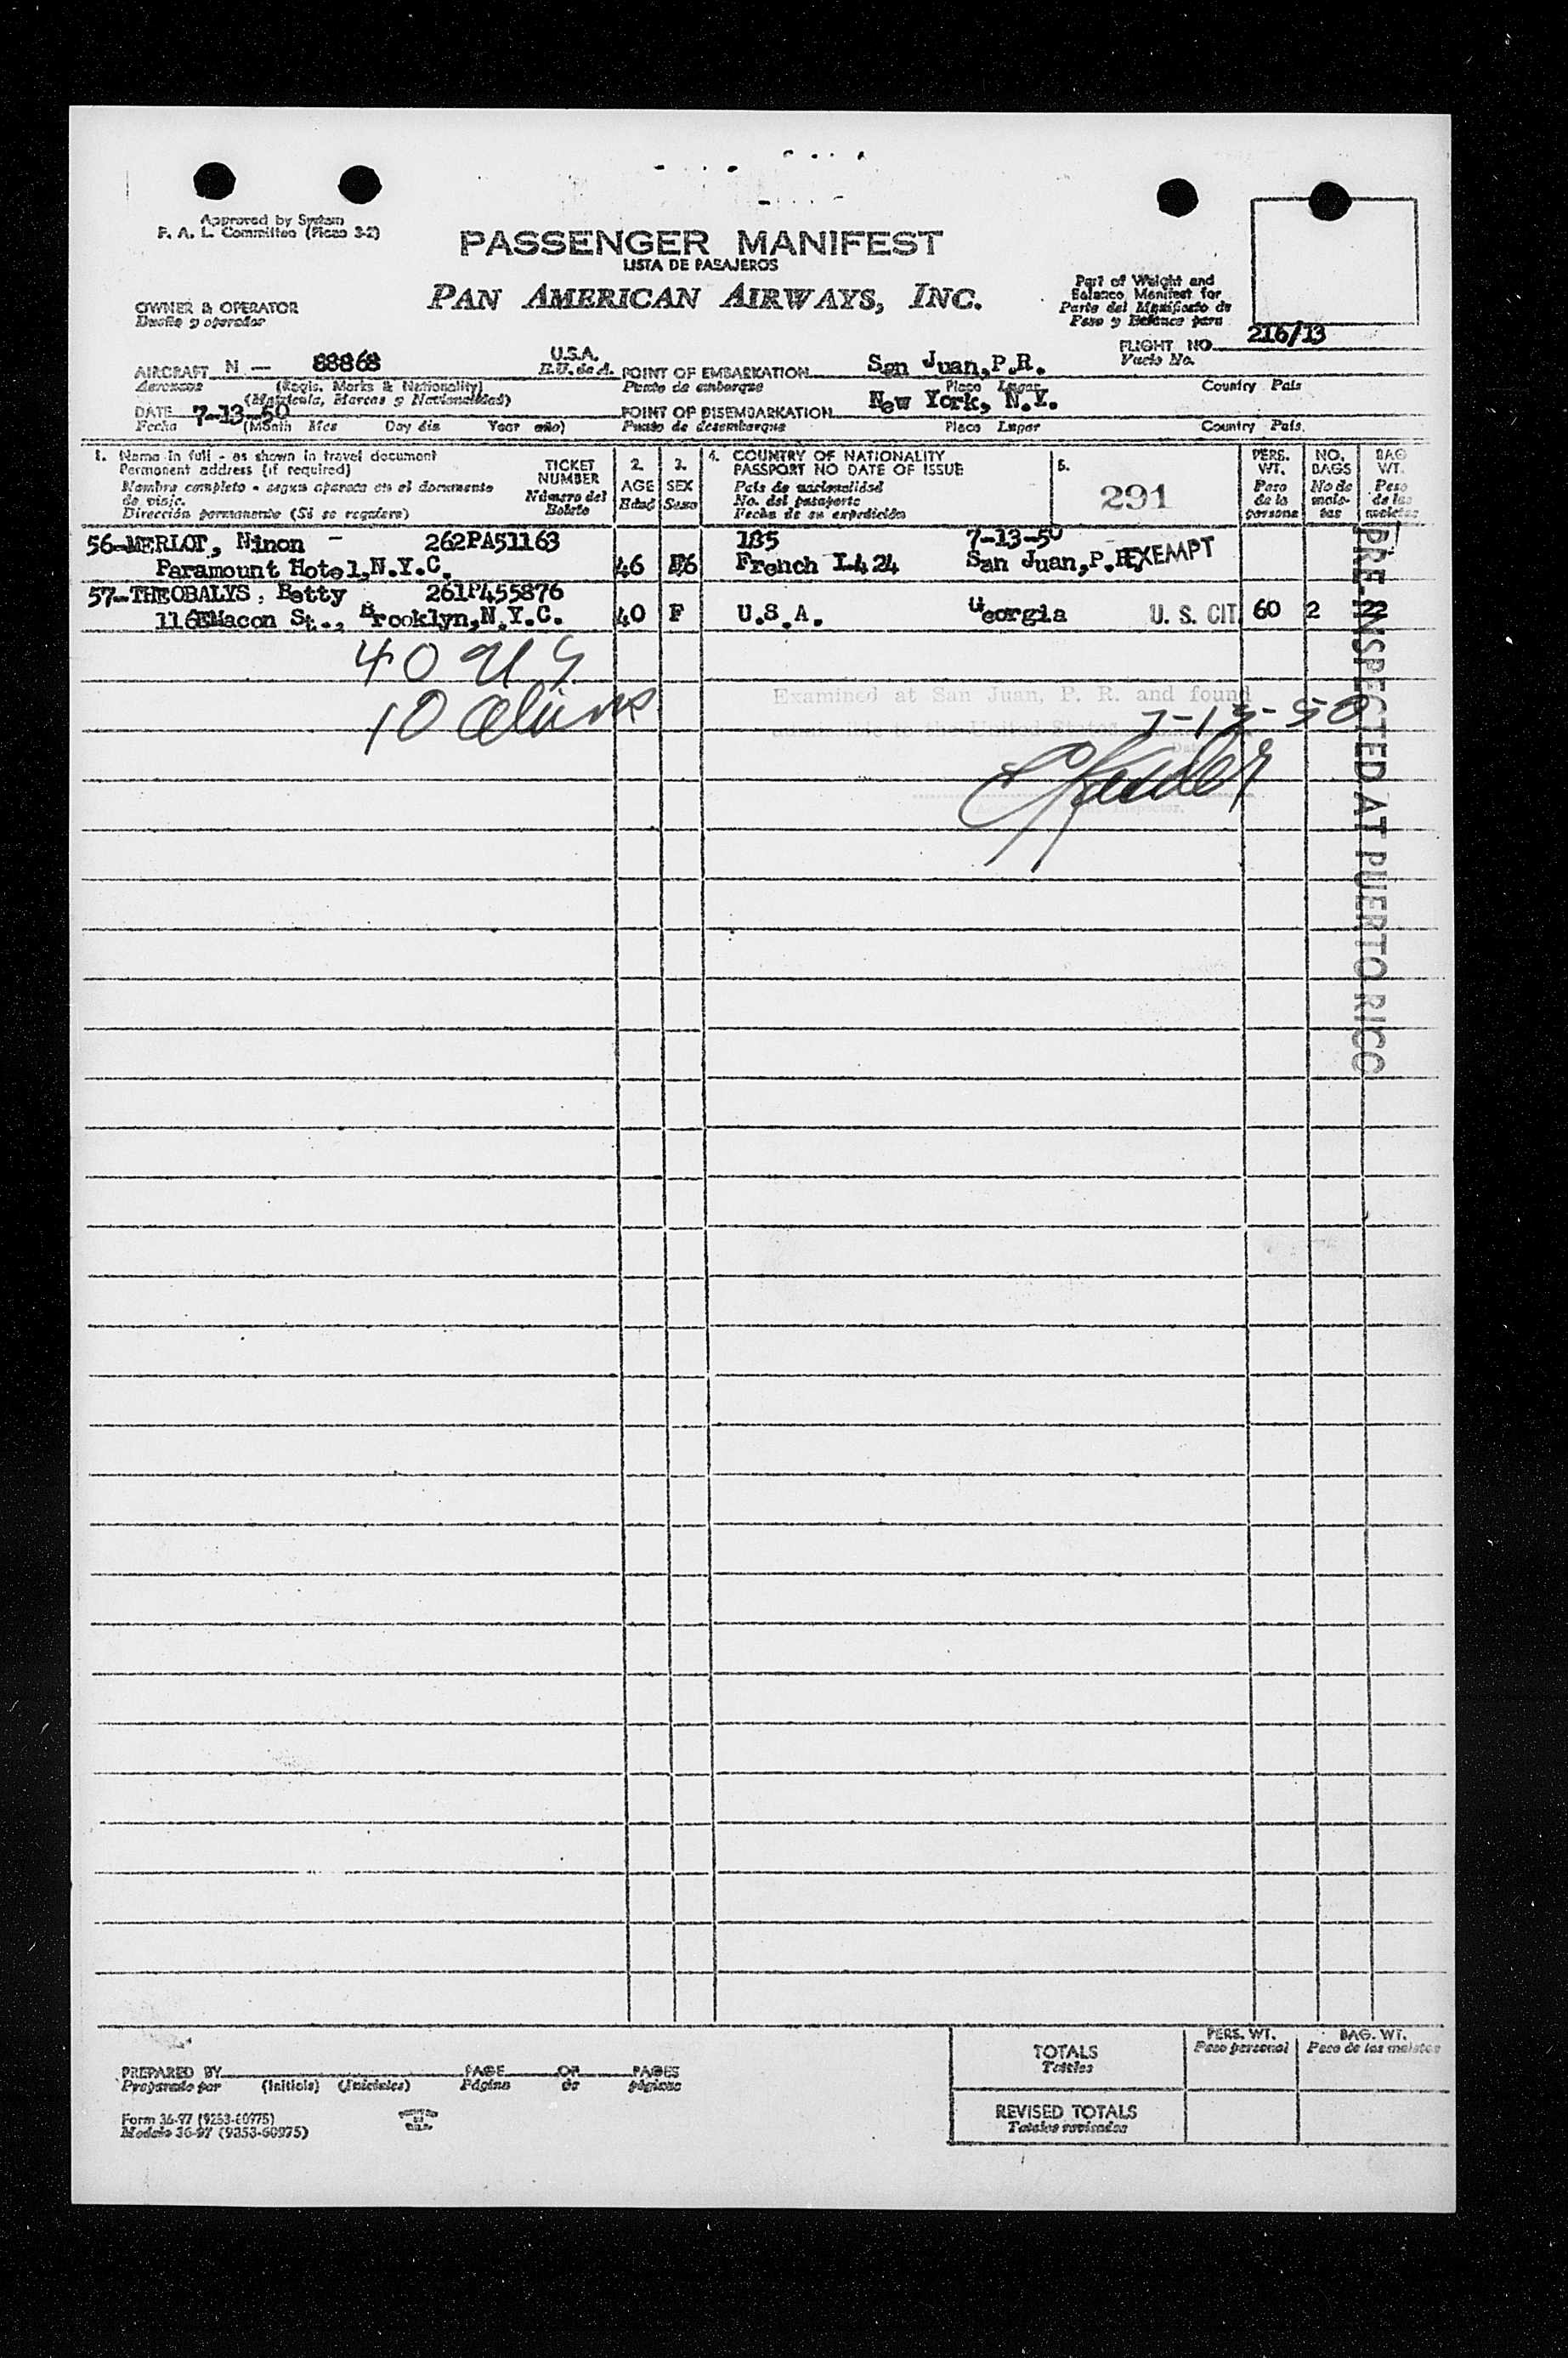 Approved by System
F. A. L. Committee (Picao 3-2)
PASSENGER MANIFEST
LISTA DE PASAJEROS
PAN AMERICAN AIRWAYS, INC.
OWNER & OPERATOR
Dueño y operador
Part of Weight and
Balance Manifest for
Parte del Manifiesto de
Peso y Balance para
FLIGHT NO. 216/13
Vuelo No.
AIRCRAFT N — 88868 U.S.A.
Aeronave (Regis. Marks & Nationality) E.U. de A.
(Matricula, Marcas y Nacionalidad)
POINT OF EMBARKATION San Juan,P.R.
Punto de embarque Place Lugar Country Pais
DATE 7-13-50
Fecha (Month Mes Day dia Year año)
POINT OF DISEMBARKATION New York, N.Y.
Punto de desembarque Place Lugar Country Pais.
1. Name in full - as shown in travel document
Permanent address (if required)
Nombre completo - segun aparece en el documento
de viaje.
Dirección permanente (Si se requiere)
TICKET
NUMBER
Número del
Boleto
2.
AGE
Edad
3.
SEX
Sexo
4. COUNTRY OF NATIONALITY
PASSPORT NO DATE OF ISSUE
Pais de nacionalidad
No. del pasaporte
Fecha de su expedición
5.
291
PERS.
WT.
Peso
de la
persona
NO.
BAGS
No de
male-
tas
BAG
WT.
Peso
de las
maletas
56-MERLOT, Ninon - 262PA51163 185 7-13-50
Paramount Hotel,N.Y.C. 46 French I-424 San Juan,P.R. EXEMPT
57-THEOBALYS, Betty 261P455876
116 Macon St., Brooklyn,N.Y.C. 40 F U.S.A. Georgia U. S. CIT 60 2 22
40 US
10 Aliens
Examined at San Juan, P. R. and found
admissible to the United States 7-13-50
Date
Inspector.
PRE-INSPECTED AT PUERTO RICO
PREPARED BY PAGE OF PAGES
Preparado por (Initials) (Iniciales) Página de páginas
Form 36-97 (9253-60975)
Modelo 36-97 (9253-60975)
PERS. WT.
Peso personal
BAG. WT.
Peso de las maletas
TOTALS
Totales
REVISED TOTALS
Totales revisados